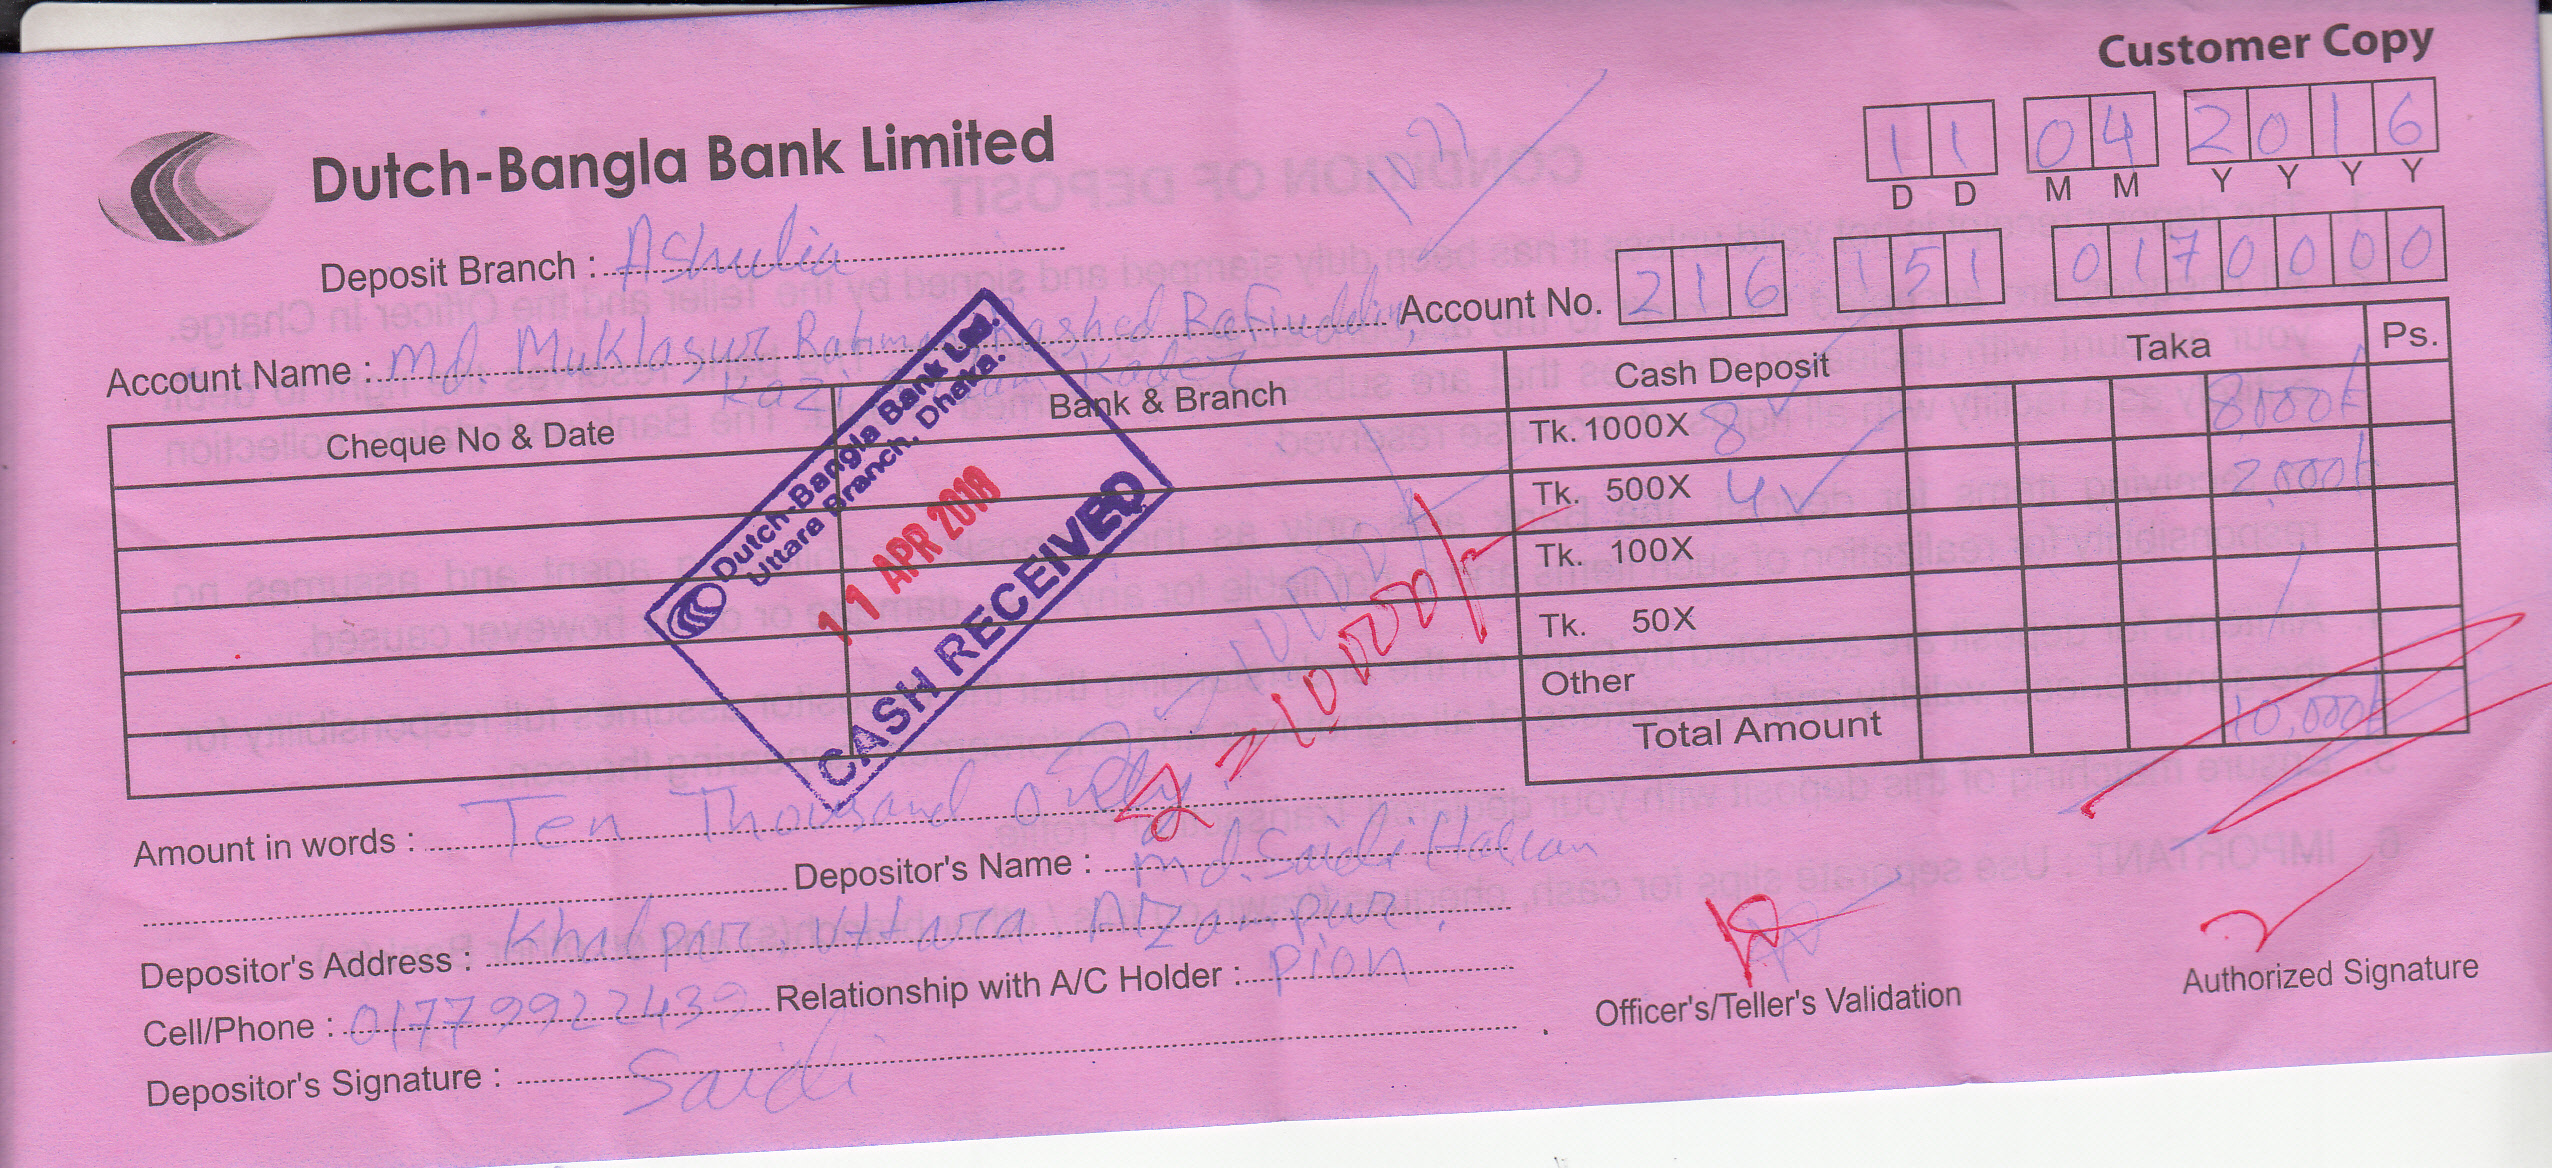 Customer Copy
Dutch-Bangla Bank Limited
11 04 2016
D D M M Y Y Y Y
Deposit Branch : Ashulia
Account No. 216 151 0170000
Account Name : Md. Muklasur Rahman Rashed Rafiuddin,
Kazi Kader
Cheque No & Date Bank & Branch Cash Deposit Taka Ps.
Tk. 1000X 8 8,000/-
Tk. 500X 4 2,000/-
Tk. 100X
Tk. 50X
Other
Total Amount 10,000/-
Dutch-Bangla Bank Ltd.
Uttara Branch, Dhaka.
11 APR 2018
CASH RECEIVED
10000/-
Amount in words : Ten Thousand only.
Depositor's Name : Md. Saidi Hassan
Depositor's Address : Khalpar, Uttara. Azampur.
Cell/Phone : 01779922439 Relationship with A/C Holder : pion
Depositor's Signature : Saidi
Officer's/Teller's Validation
Authorized Signature
CONDITION OF DEPOSIT